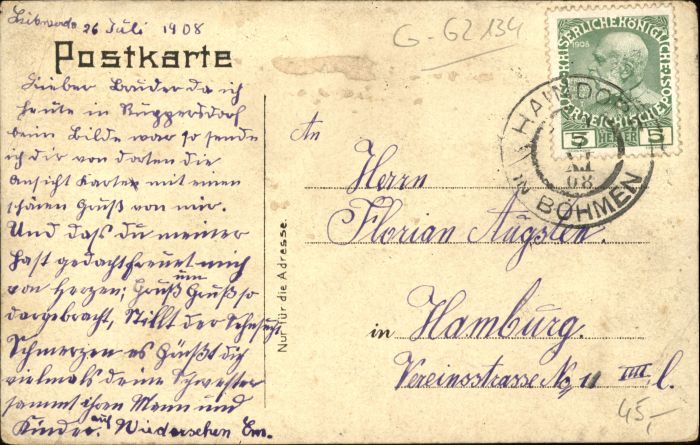 Liebwerda 26 Juli 1908
Postkarte
Lieber Bruder da ich
heute in Ruppersdorf
beim Bilde war so sende
ich dir von dorten die
Ansicht Karten mit einen
schönen Gruß von mir.
Und daß du meiner
hast gedacht freuet mich
von Herzen; Gruß um Gruß so
dargebracht, Stillt der Sehnsucht
Schmerzen es Grüßt dich
vielmals deine Schwester
sammt ihren Mann und
Kinder. auf Wiedersehen Em.
Nur für die Adresse.
G-GZ 134
KAISERLICHE KÖNIGLICHE
ÖSTERREICHISCHE POST
1908
5 HELLER 5
HAINDORF
08
IN BÖHMEN
An
Herrn
Florian Augsten.
in Hamburg.
Vereinsstrasse No, 11 IIII l.
45,-